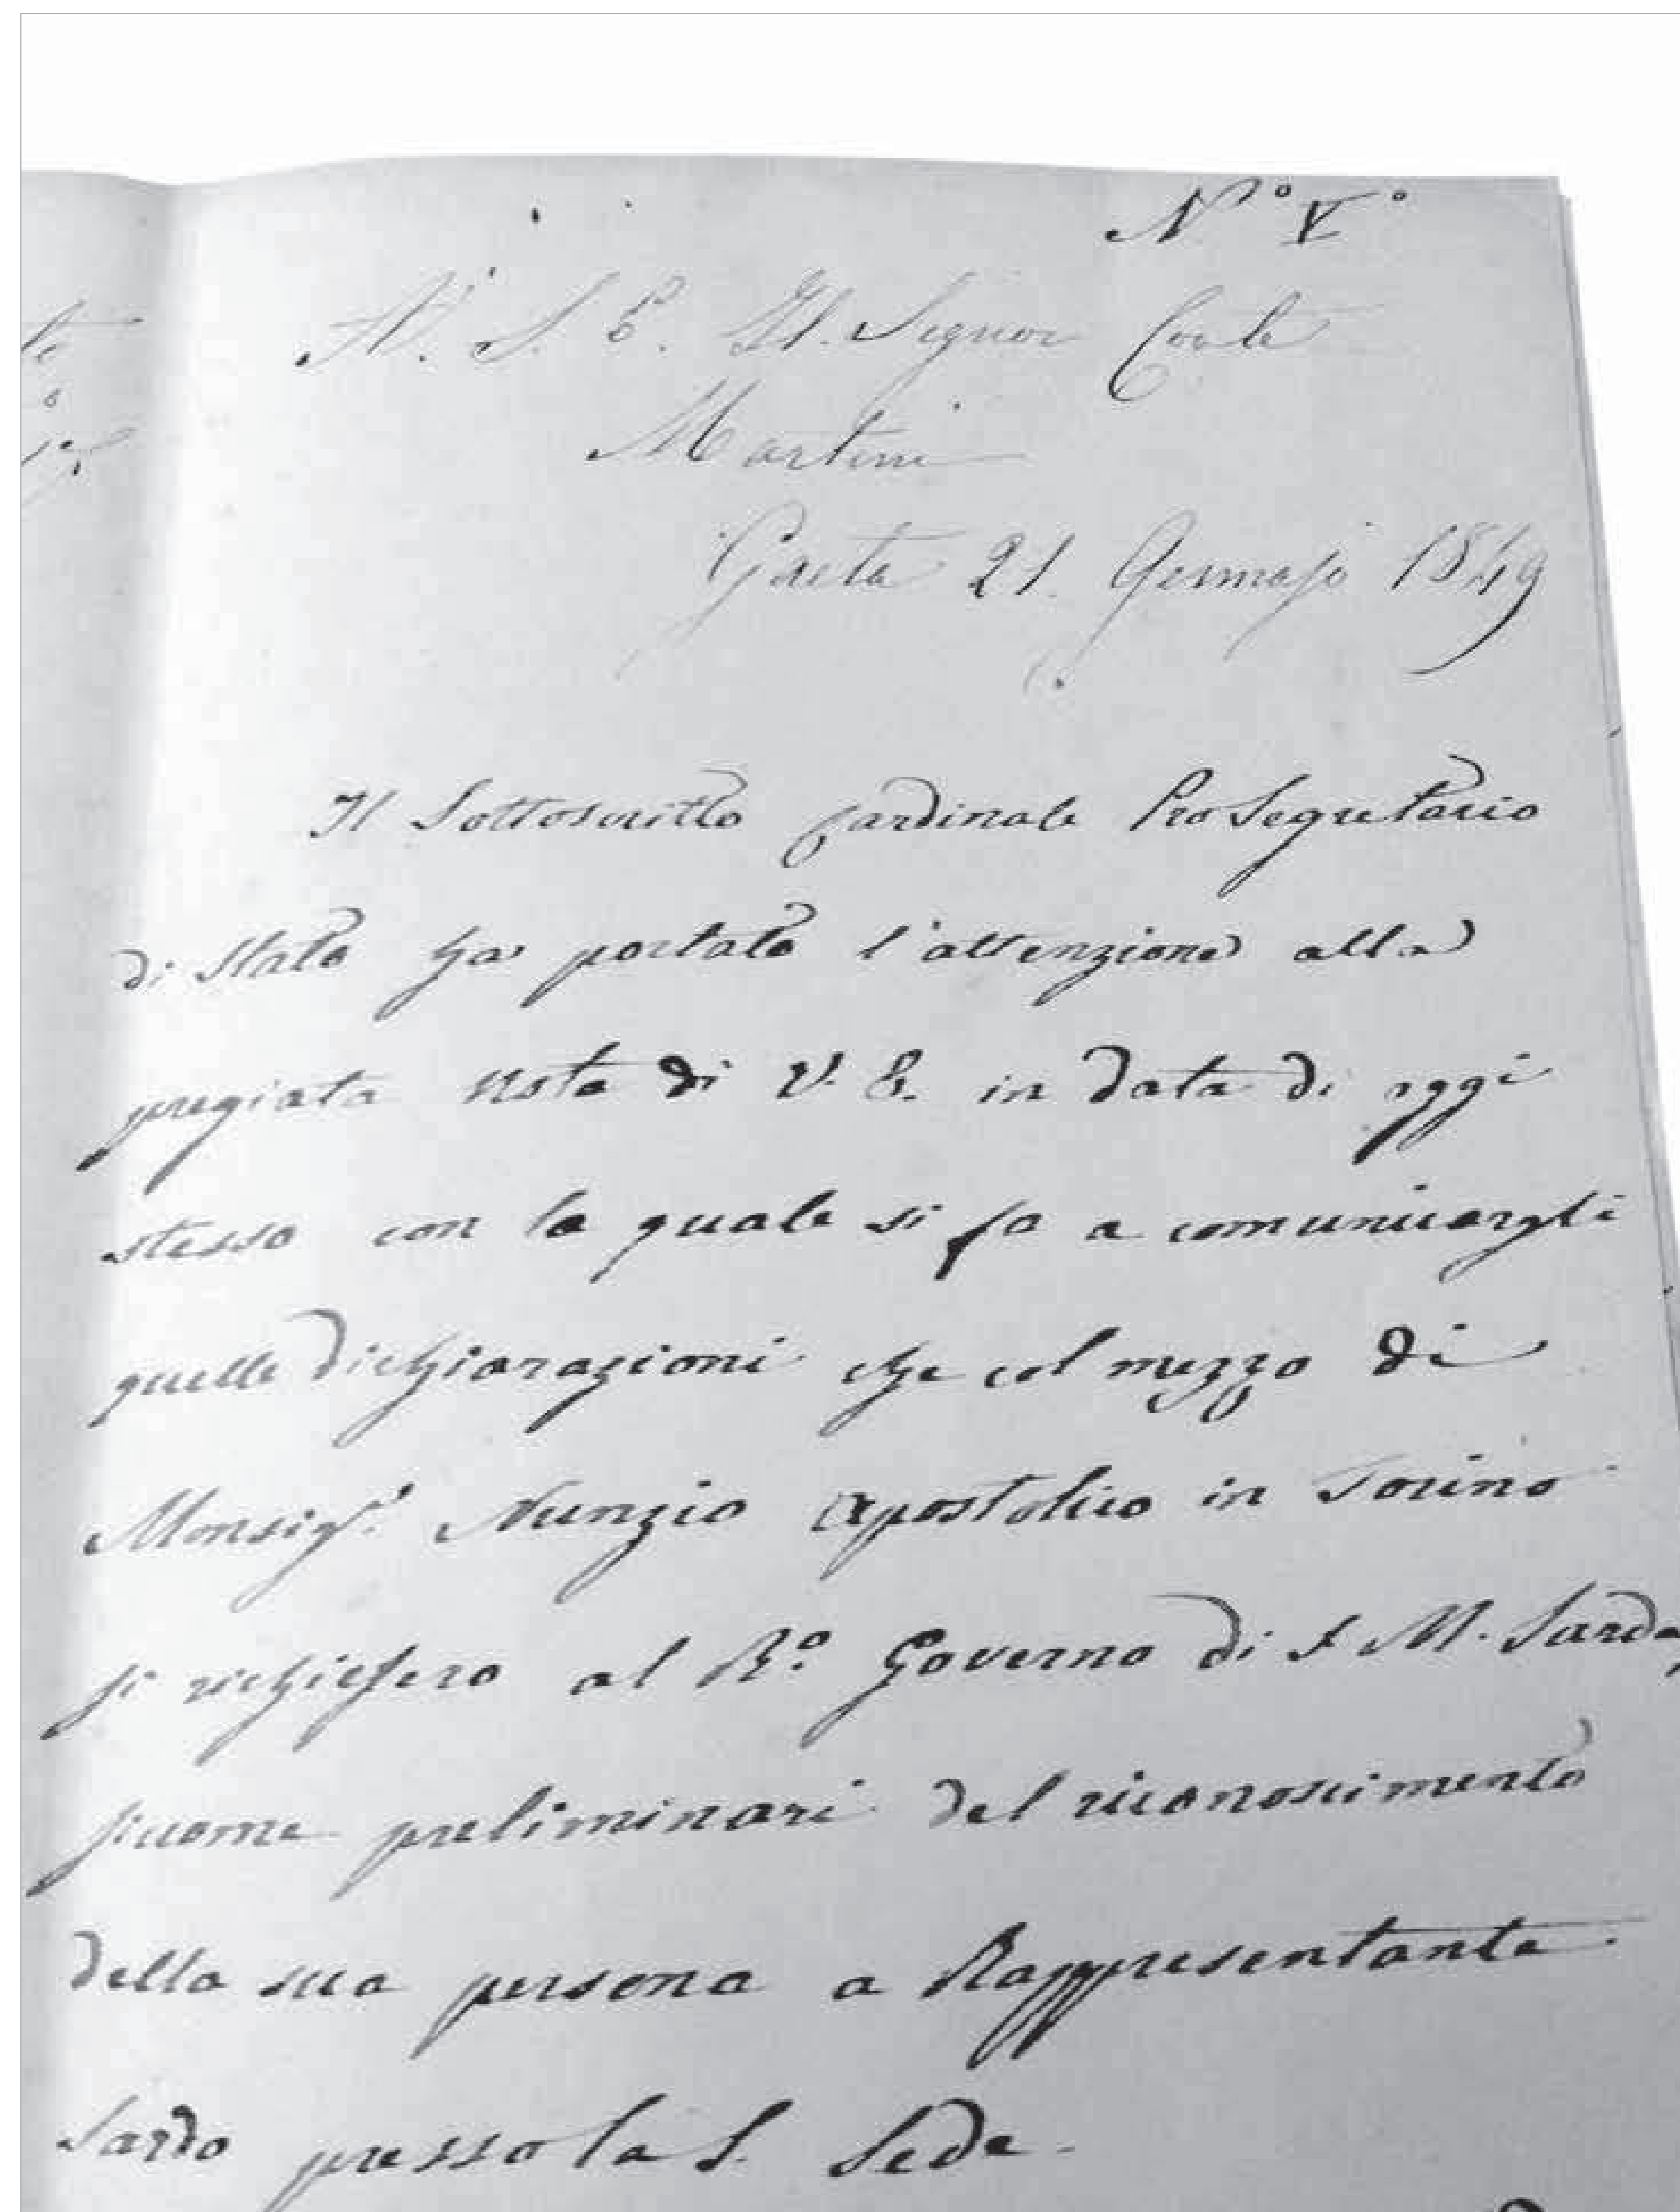 N.° V.°
A. S. E. Il Signor Conte
Martini
Gaeta 21. Gennajo 1849
Il Sottoscritto Cardinale Pro Segretario
di Stato ha portato l'attenzione alla
pregiata Nota di V. E. in data di oggi
stesso con la quale si fa a comunicargli
quelle dichiarazioni che col mezzo di
Monsig.r Nunzio Apostolico in Torino
si richiesero al R.° Governo di S. M. Sarda,
siccome preliminari del riconoscimento
della sua persona a Rappresentante
Sardo presso la S. Sede.